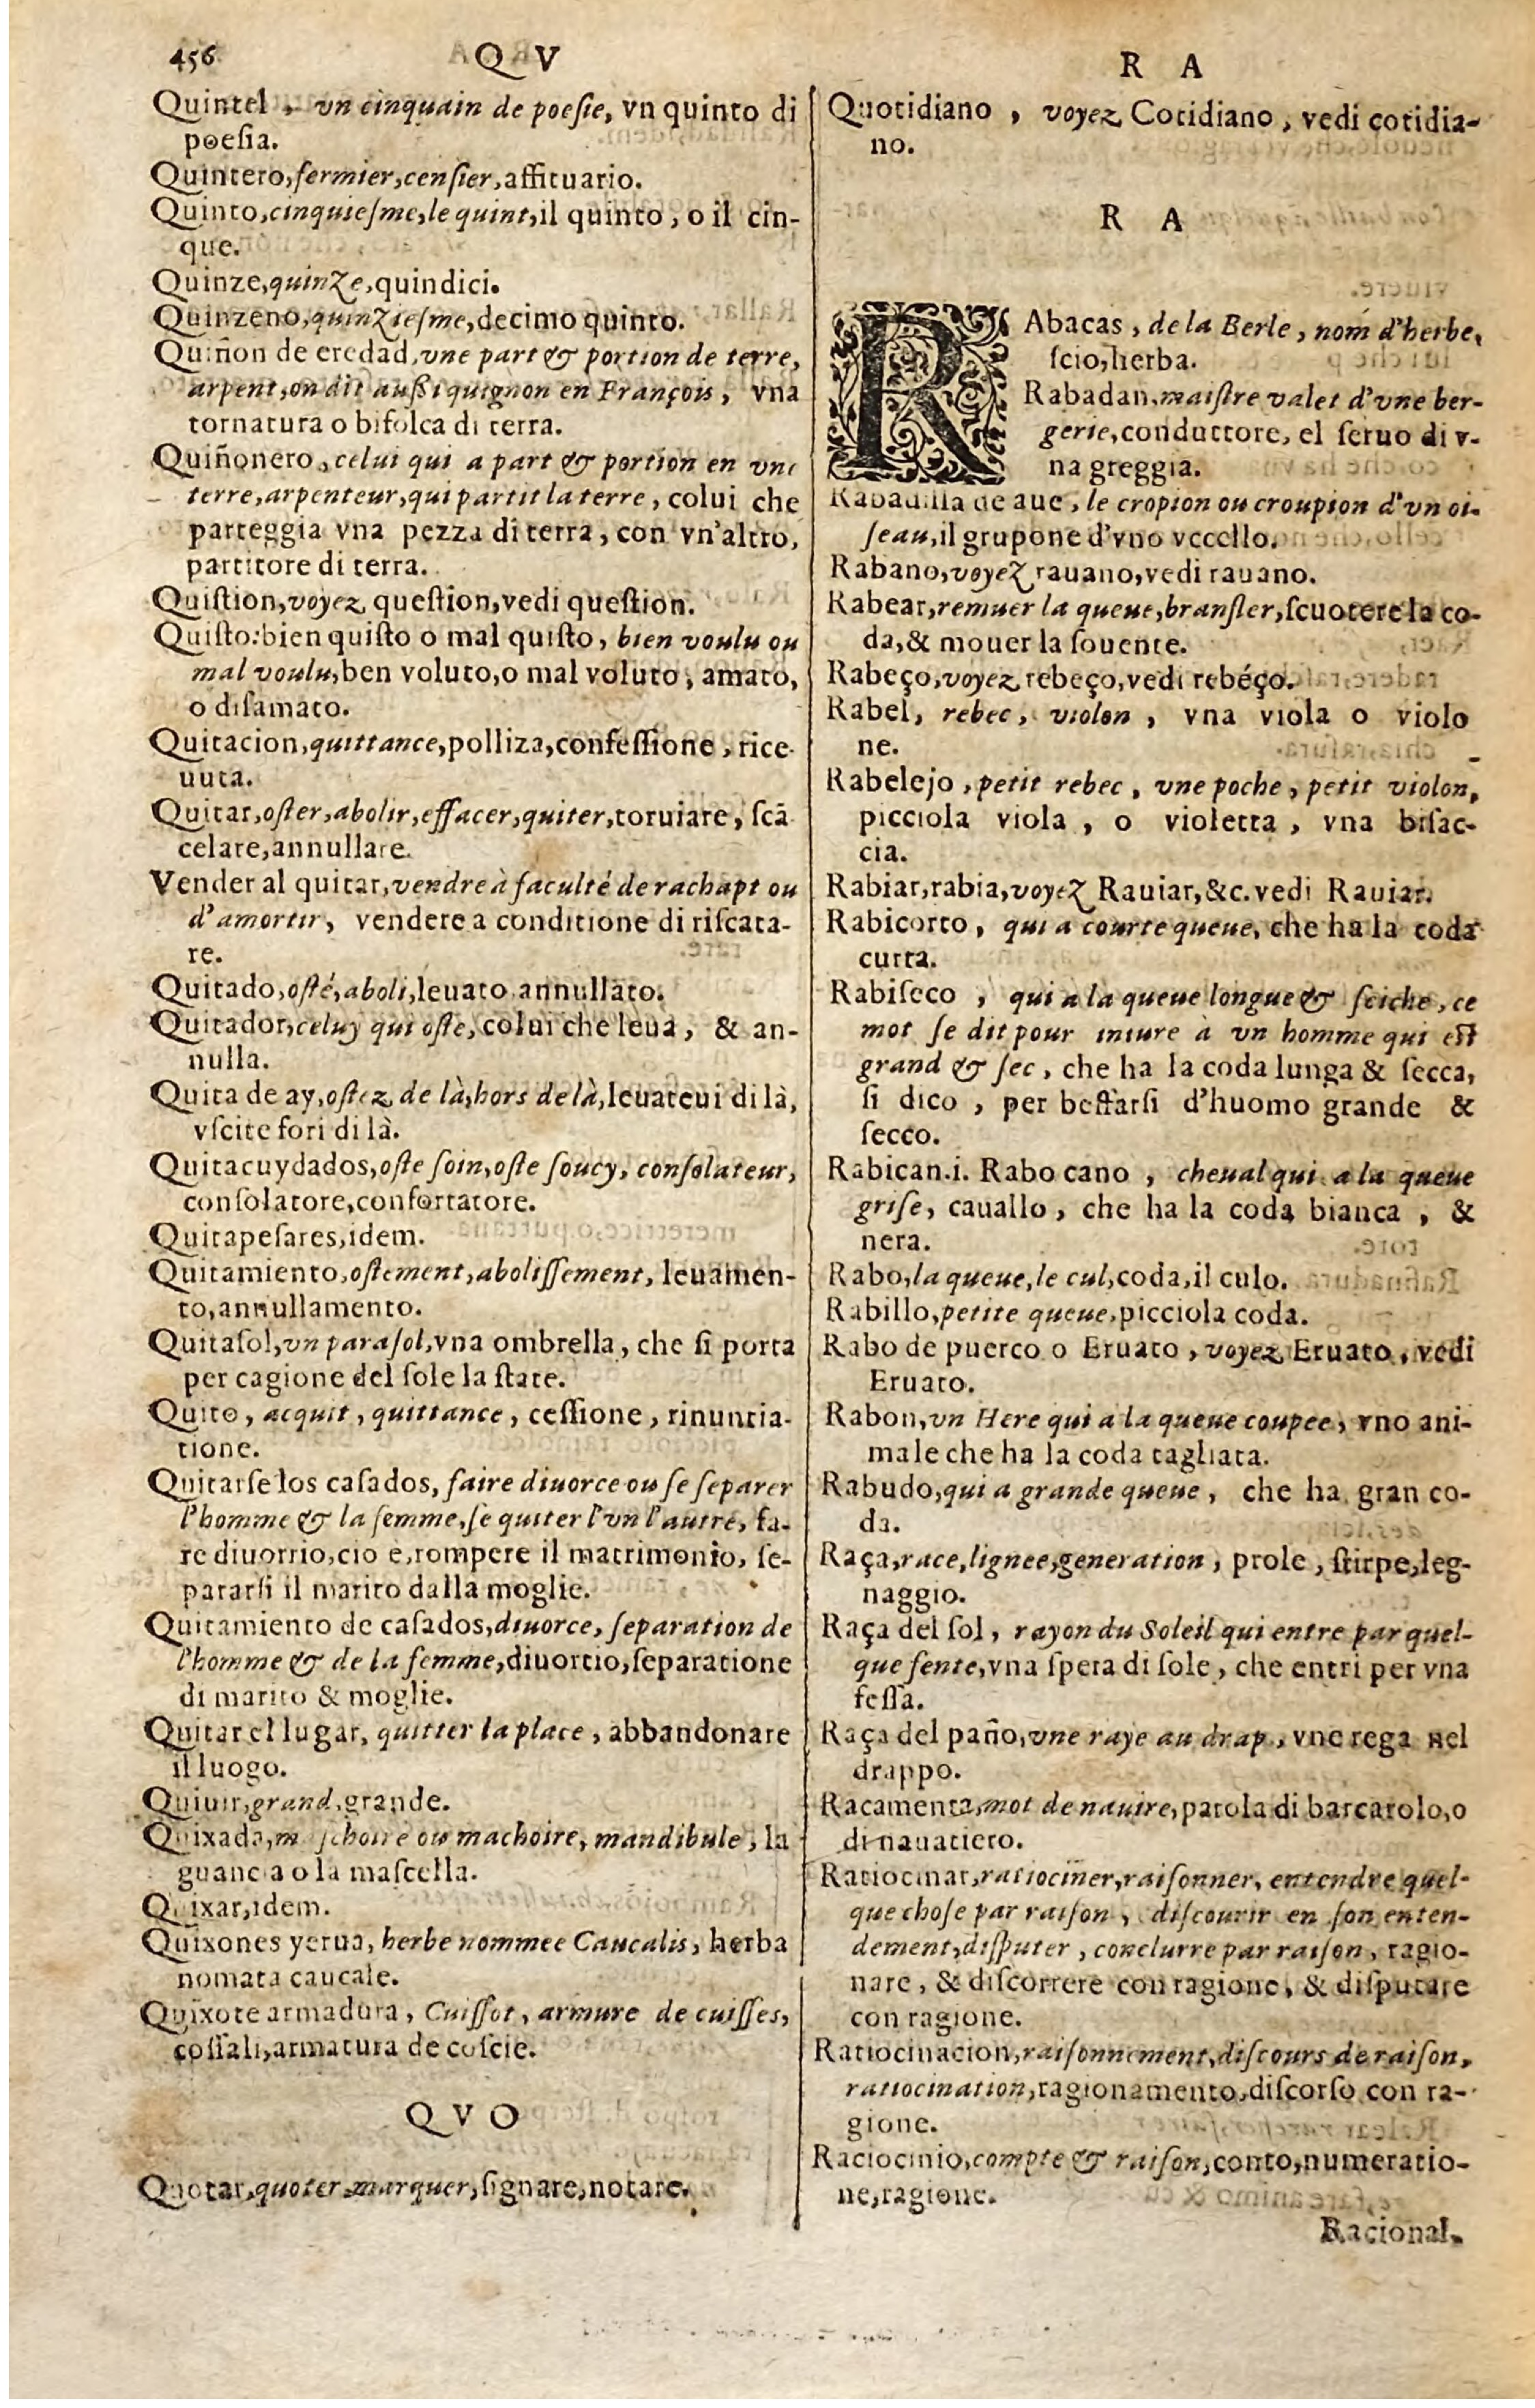 456
Q V
Quintel, vn cinquain de poeſie, vn quinto di
poeſia.
Quintero, fermier, cenſier, affituario.
Quinto, cinquieſme, le quint, il quinto, o il cin-
que.
Quinze, quinze, quindici.
Quinzeno, quinzieſme, decimo quinto.
Quiñon de eredad, vne part & portion de terre,
arpent, on dit außi quignon en François, vna
tornatura o bifolca di terra.
Quiñonero, celui qui a part & portion en vne
terre, arpenteur, qui partit la terre, colui che
parteggia vna pezza di terra, con vn'altro,
partitore di terra.
Quiſtion, voyez queſtion, vedi queſtion.
Quiſto: bien quiſto o mal quiſto, bien voulu ou
mal voulu, ben voluto, o mal voluto, amato,
o diſamato.
Quitacion, quittance, polliza, confeſſione, rice-
uuta.
Quitar, oſter, abolir, effacer, quiter, toruiare, ſcã
celare, annullare.
Vender al quitar, vendre à faculté de rachapt ou
d'amortir, vendere a conditione di riſcata-
re.
Quitado, oſté, aboli, leuato annullato.
Quitador, celuy qui oſte, colui che leua, & an-
nulla.
Quita de ay, oſtez de là, hors de là, leuateui di là,
vſcite fori di là.
Quitacuydados, oſte ſoin, oſte ſoucy, conſolateur,
conſolatore, confortatore.
Quitapeſares, idem.
Quitamiento, oſtement, aboliſſement, leuamen-
to, annullamento.
Quitaſol, vn paraſol, vna ombrella, che ſi porta
per cagione del ſole la ſtate.
Quito, acquit, quittance, ceſſione, rinuntia-
tione.
Quitarſe los caſados, faire diuorce ou ſe ſeparer
l'homme & la femme, ſe quiter l'vn l'autre, fa-
re diuorrio, cio e, rompere il matrimonio, ſe-
pararſi il marito dalla moglie.
Quitamiento de caſados, diuorce, ſeparation de
l'homme & de la femme, diuortio, ſeparatione
di marito & moglie.
Quitar el lugar, quitter la place, abbandonare
il luogo.
Quiuir, grand, grande.
Quixada, machoire, mandibule, la
guancia o la maſcella.
Quixar, idem.
Quixones yerua, herbe nommee Caucalis, herba
nomata caucale.
Quixote armadura, Cuiſſot, armure de cuiſſes,
coſſali, armatura de coſcie.
Q V O
Quotar, quoter, marquer, ſignare, notare.
R A
Quotidiano, voyez Cotidiano, vedi cotidia-
no.
R A
RAbacas, de la Berle, nom d'herbe,
ſcio, herba.
Rabadan, maiſtre valet d'vne ber-
gerie, conduttore, el ſeruo di v-
na greggia.
Rabadilla de aue, le cropion ou croupion d'vn oi-
ſeau, il grupone d'vno vccello.
Rabano, voyez rauano, vedi rauano.
Rabear, remuer la queue, branſler, ſcuotere la co-
da, & mouer la ſouente.
Rabeço, voyez rebeço, vedi rebéço.
Rabel, rebec, violon, vna viola o violo
ne.
Rabelejo, petit rebec, vne poche, petit violon,
picciola viola, o violetta, vna biſac-
cia.
Rabiar, rabia, voyez Rauiar, &c. vedi Rauiar.
Rabicorto, qui a courte queue, che ha la coda
curta.
Rabiſeco, qui a la queue longue & ſeiche, ce
mot ſe dit pour iniure à vn homme qui eſt
grand & ſec, che ha la coda lunga & ſecca,
ſi dico, per beffarſi d'huomo grande &
ſecco.
Rabican. i. Rabo cano, cheual qui a la queue
griſe, cauallo, che ha la coda bianca, &
nera.
Rabo, la queue, le cul, coda, il culo.
Rabillo, petite queue, picciola coda.
Rabo de puerco o Eruato, voyez Eruato, vedi
Eruato.
Rabon, vn Here qui a la queue coupee, vno ani-
male che ha la coda tagliata.
Rabudo, qui a grande queue, che ha gran co-
da.
Raça, race, lignee, generation, prole, ſtirpe, leg-
naggio.
Raça del ſol, rayon du Soleil qui entre par quel-
que fente, vna ſpera di ſole, che entri per vna
feſſa.
Raça del paño, vne raye au drap, vne rega nel
drappo.
Racamenta, mot de nauire, parola di barcarolo, o
di nauatiero.
Raciocinar, ratiociner, raiſonner, entendre quel-
que choſe par raiſon, diſcourir en ſon enten-
dement, diſputer, conclurre par raiſon, ragio-
nare, & diſcorrere con ragione, & diſputare
con ragione.
Ratiocinacion, raiſonnement, diſcours de raiſon,
ratiocination, ragionamento, diſcorſo con ra-
gione.
Raciocinio, compte & raiſon, conto, numeratio-
ne, ragione.
Racional.